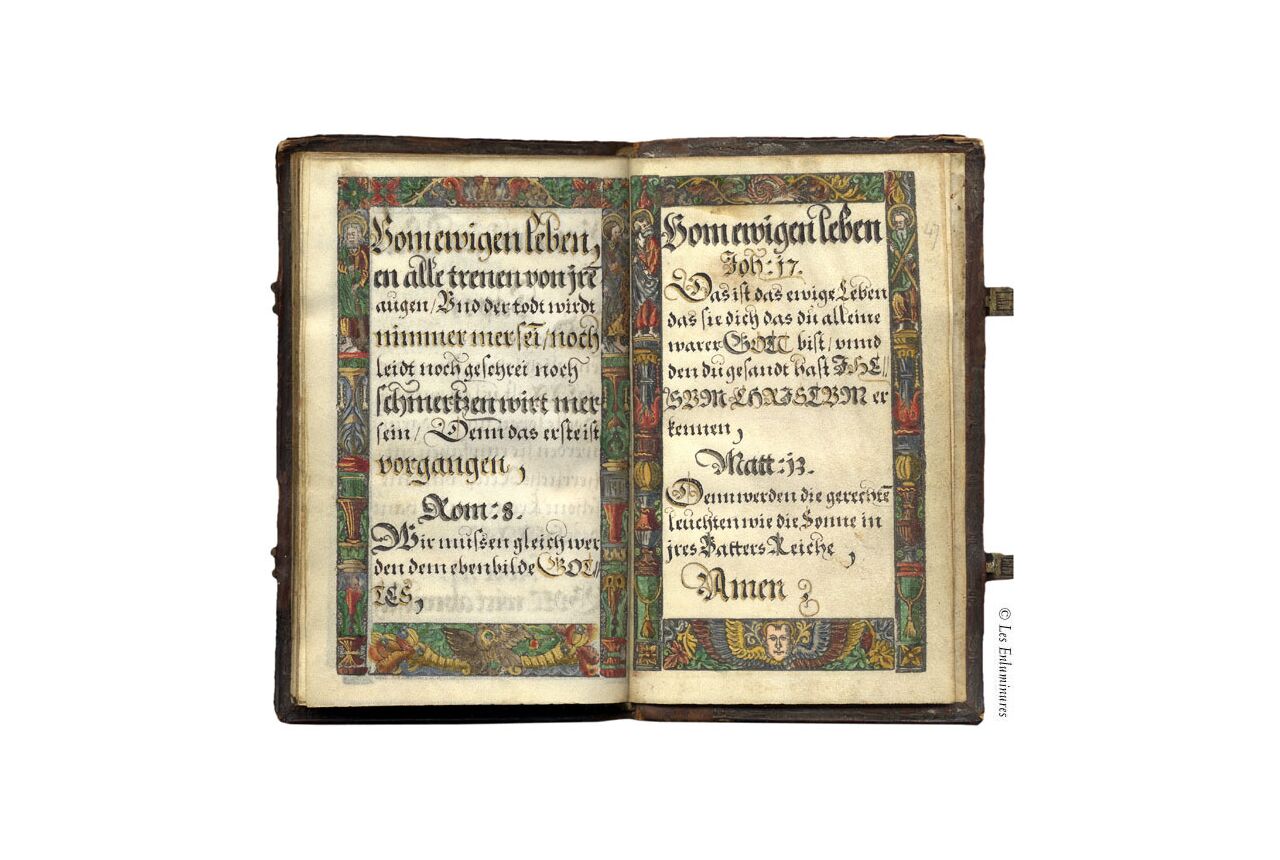 Vom ewigen leben,
en alle trenen von jrē
augen / Vnd der todt wirdt
nimmer mer sei̅ / noch
leidt noch geschrei noch
schmertzen wirt mer-
sein / Denn das erste ist
vorgangen,
Rom: 8.
Wir mussen gleich wer
den dem ebenbilde GOT//
TES,
Vom ewigen leben
Joh: 17.
Das ist das ewige Leben
das sie dich das du alleine
warer GOTT bist / vnnd
den du gesandt hast JHE//
SVM CHRISTVM er
kennen,
Matt: 13.
Denn werden die gerechtē
leuchten wie die Sonne in
jres Vatters Reiche,
Amen
47
© Les Enluminures